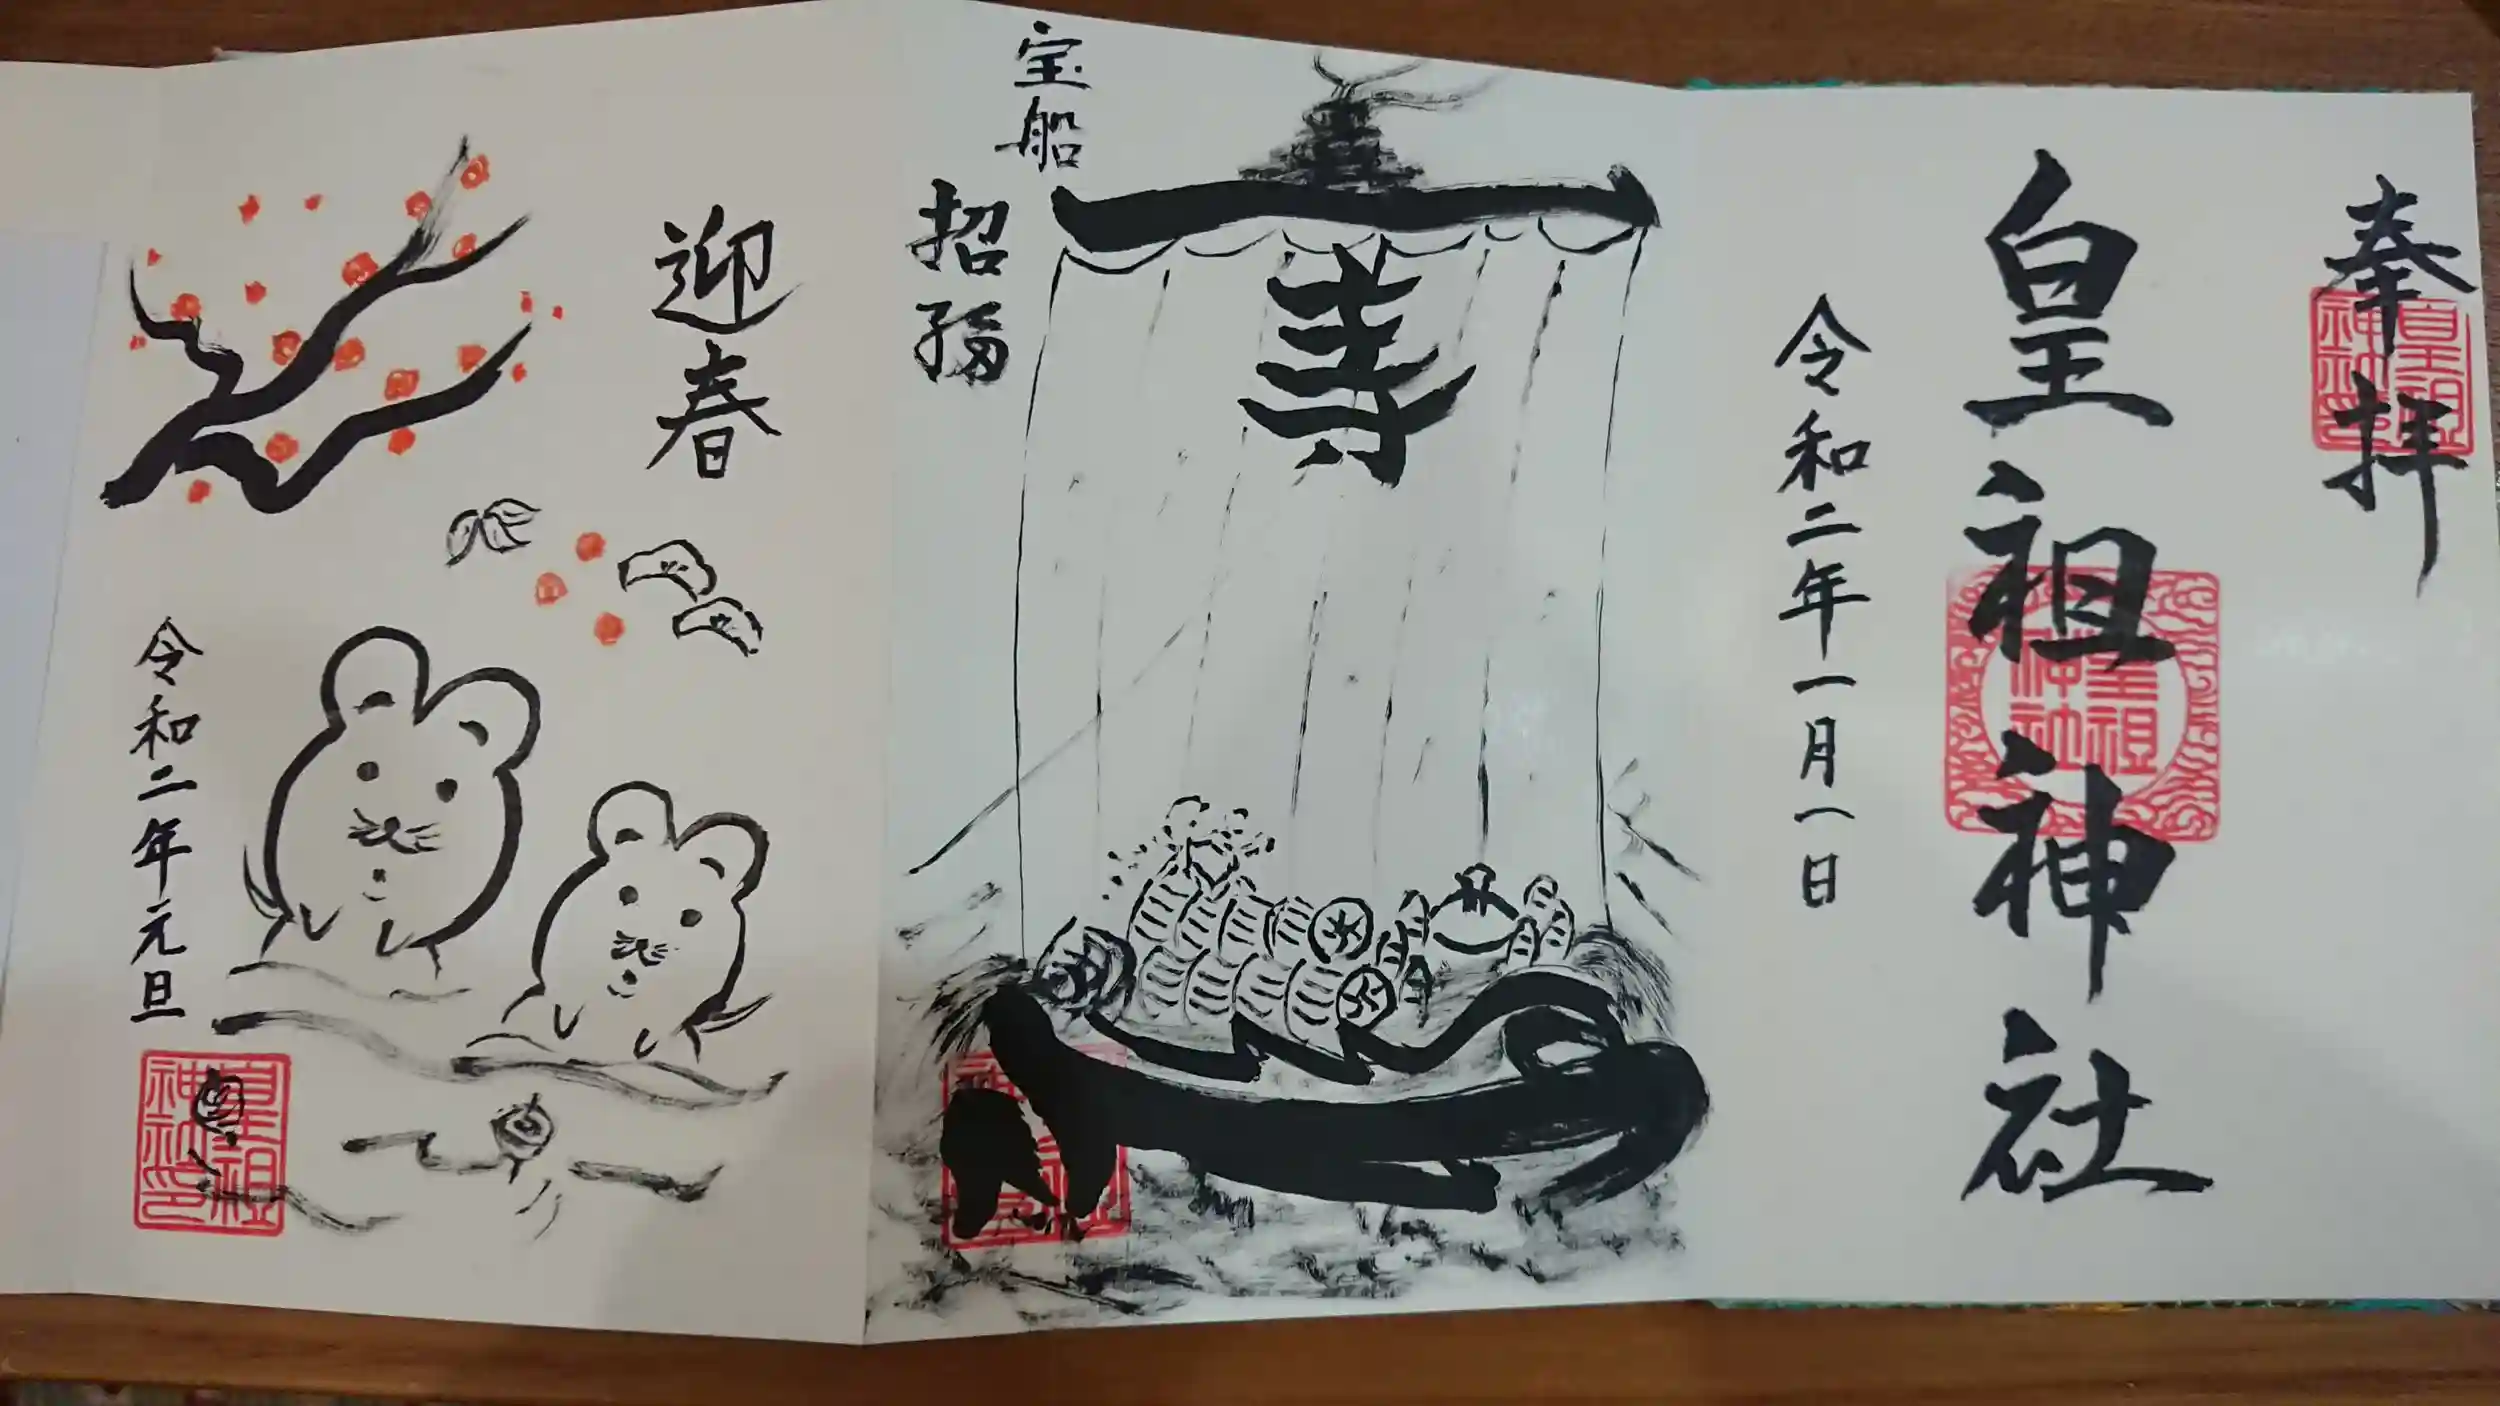 奉拝
皇祖神社
令和二年一月一日
皇祖神社印
皇祖神社
宝船
招福
寿
迎春
令和二年元旦
皇祖神社印